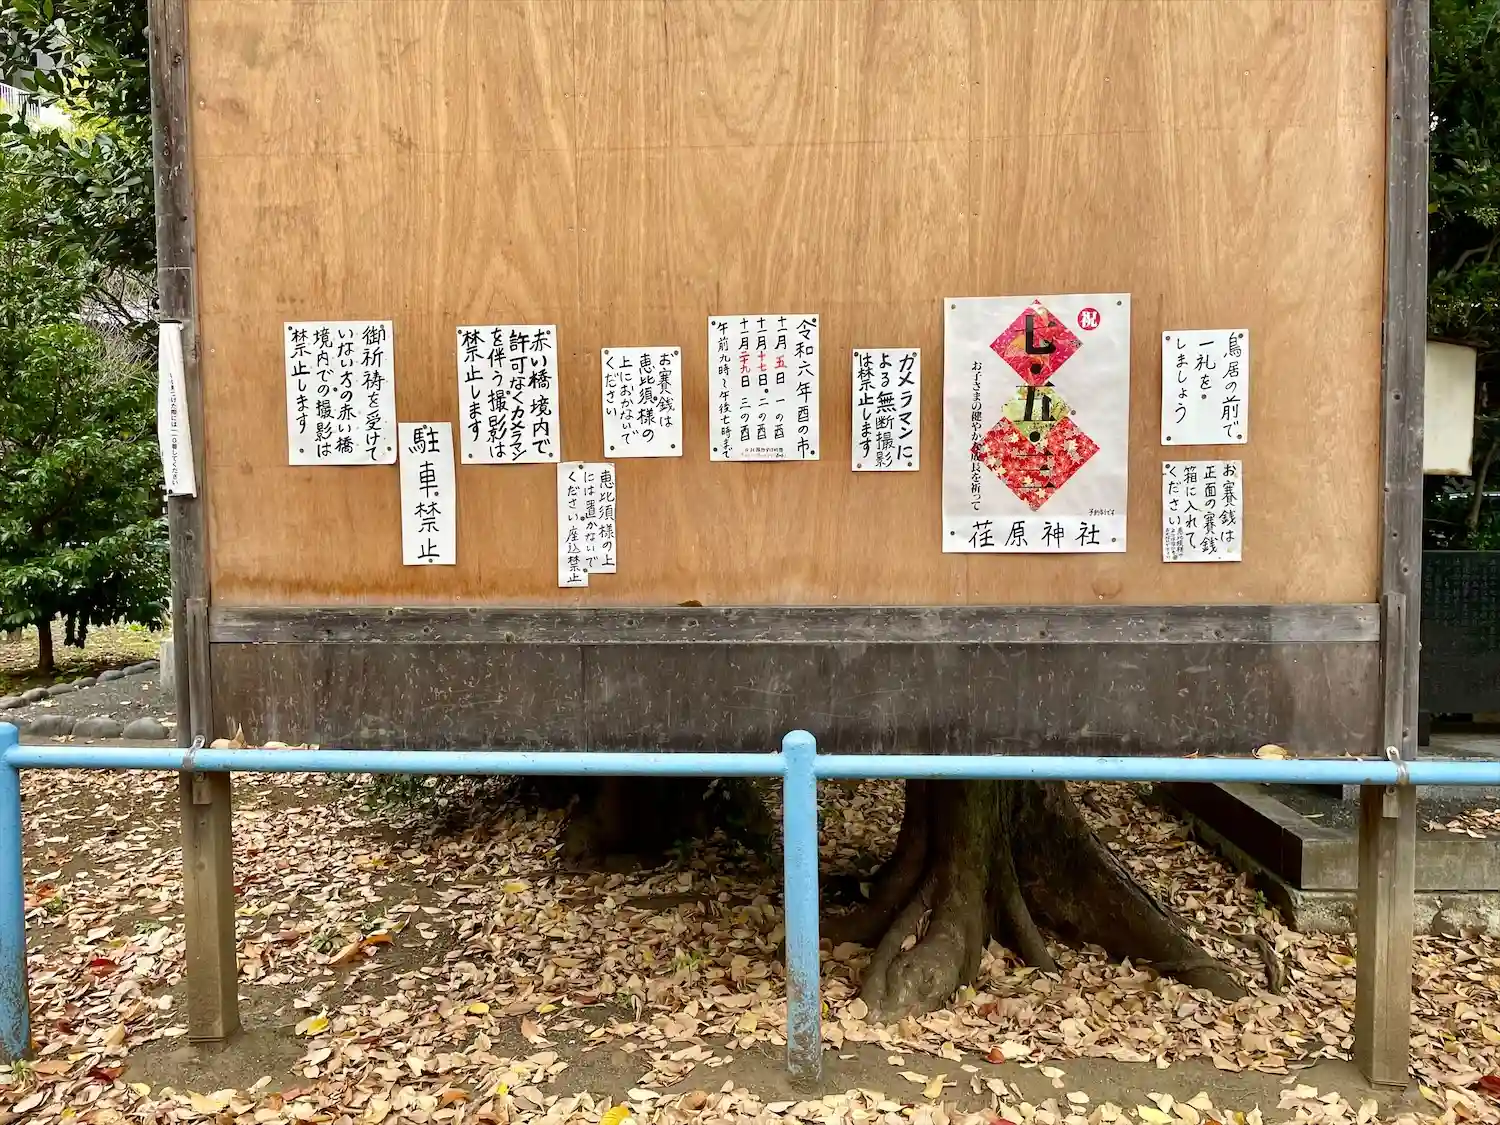 御祈祷を受けて
いない方の赤い橋
境内での撮影は
禁止します
駐車禁止
赤い橋境内で
許可なくカメラマン
を伴う撮影は
禁止します
お賽銭は
恵比須様の
上におかないで
ください
恵比須様の上
には置かないで
ください
座込禁止
令和六年酉の市
十一月五日 一の酉
十一月十七日 二の酉
十一月二十九日 三の酉
午前九時〜午後七時まで
カメラマンに
よる無断撮影
は禁止します
祝
七・五・三
お子さまの健やかな成長を祈って
荏原神社
鳥居の前で
一礼を
しましょう
お賽銭は
正面の賽銭
箱に入れて
ください